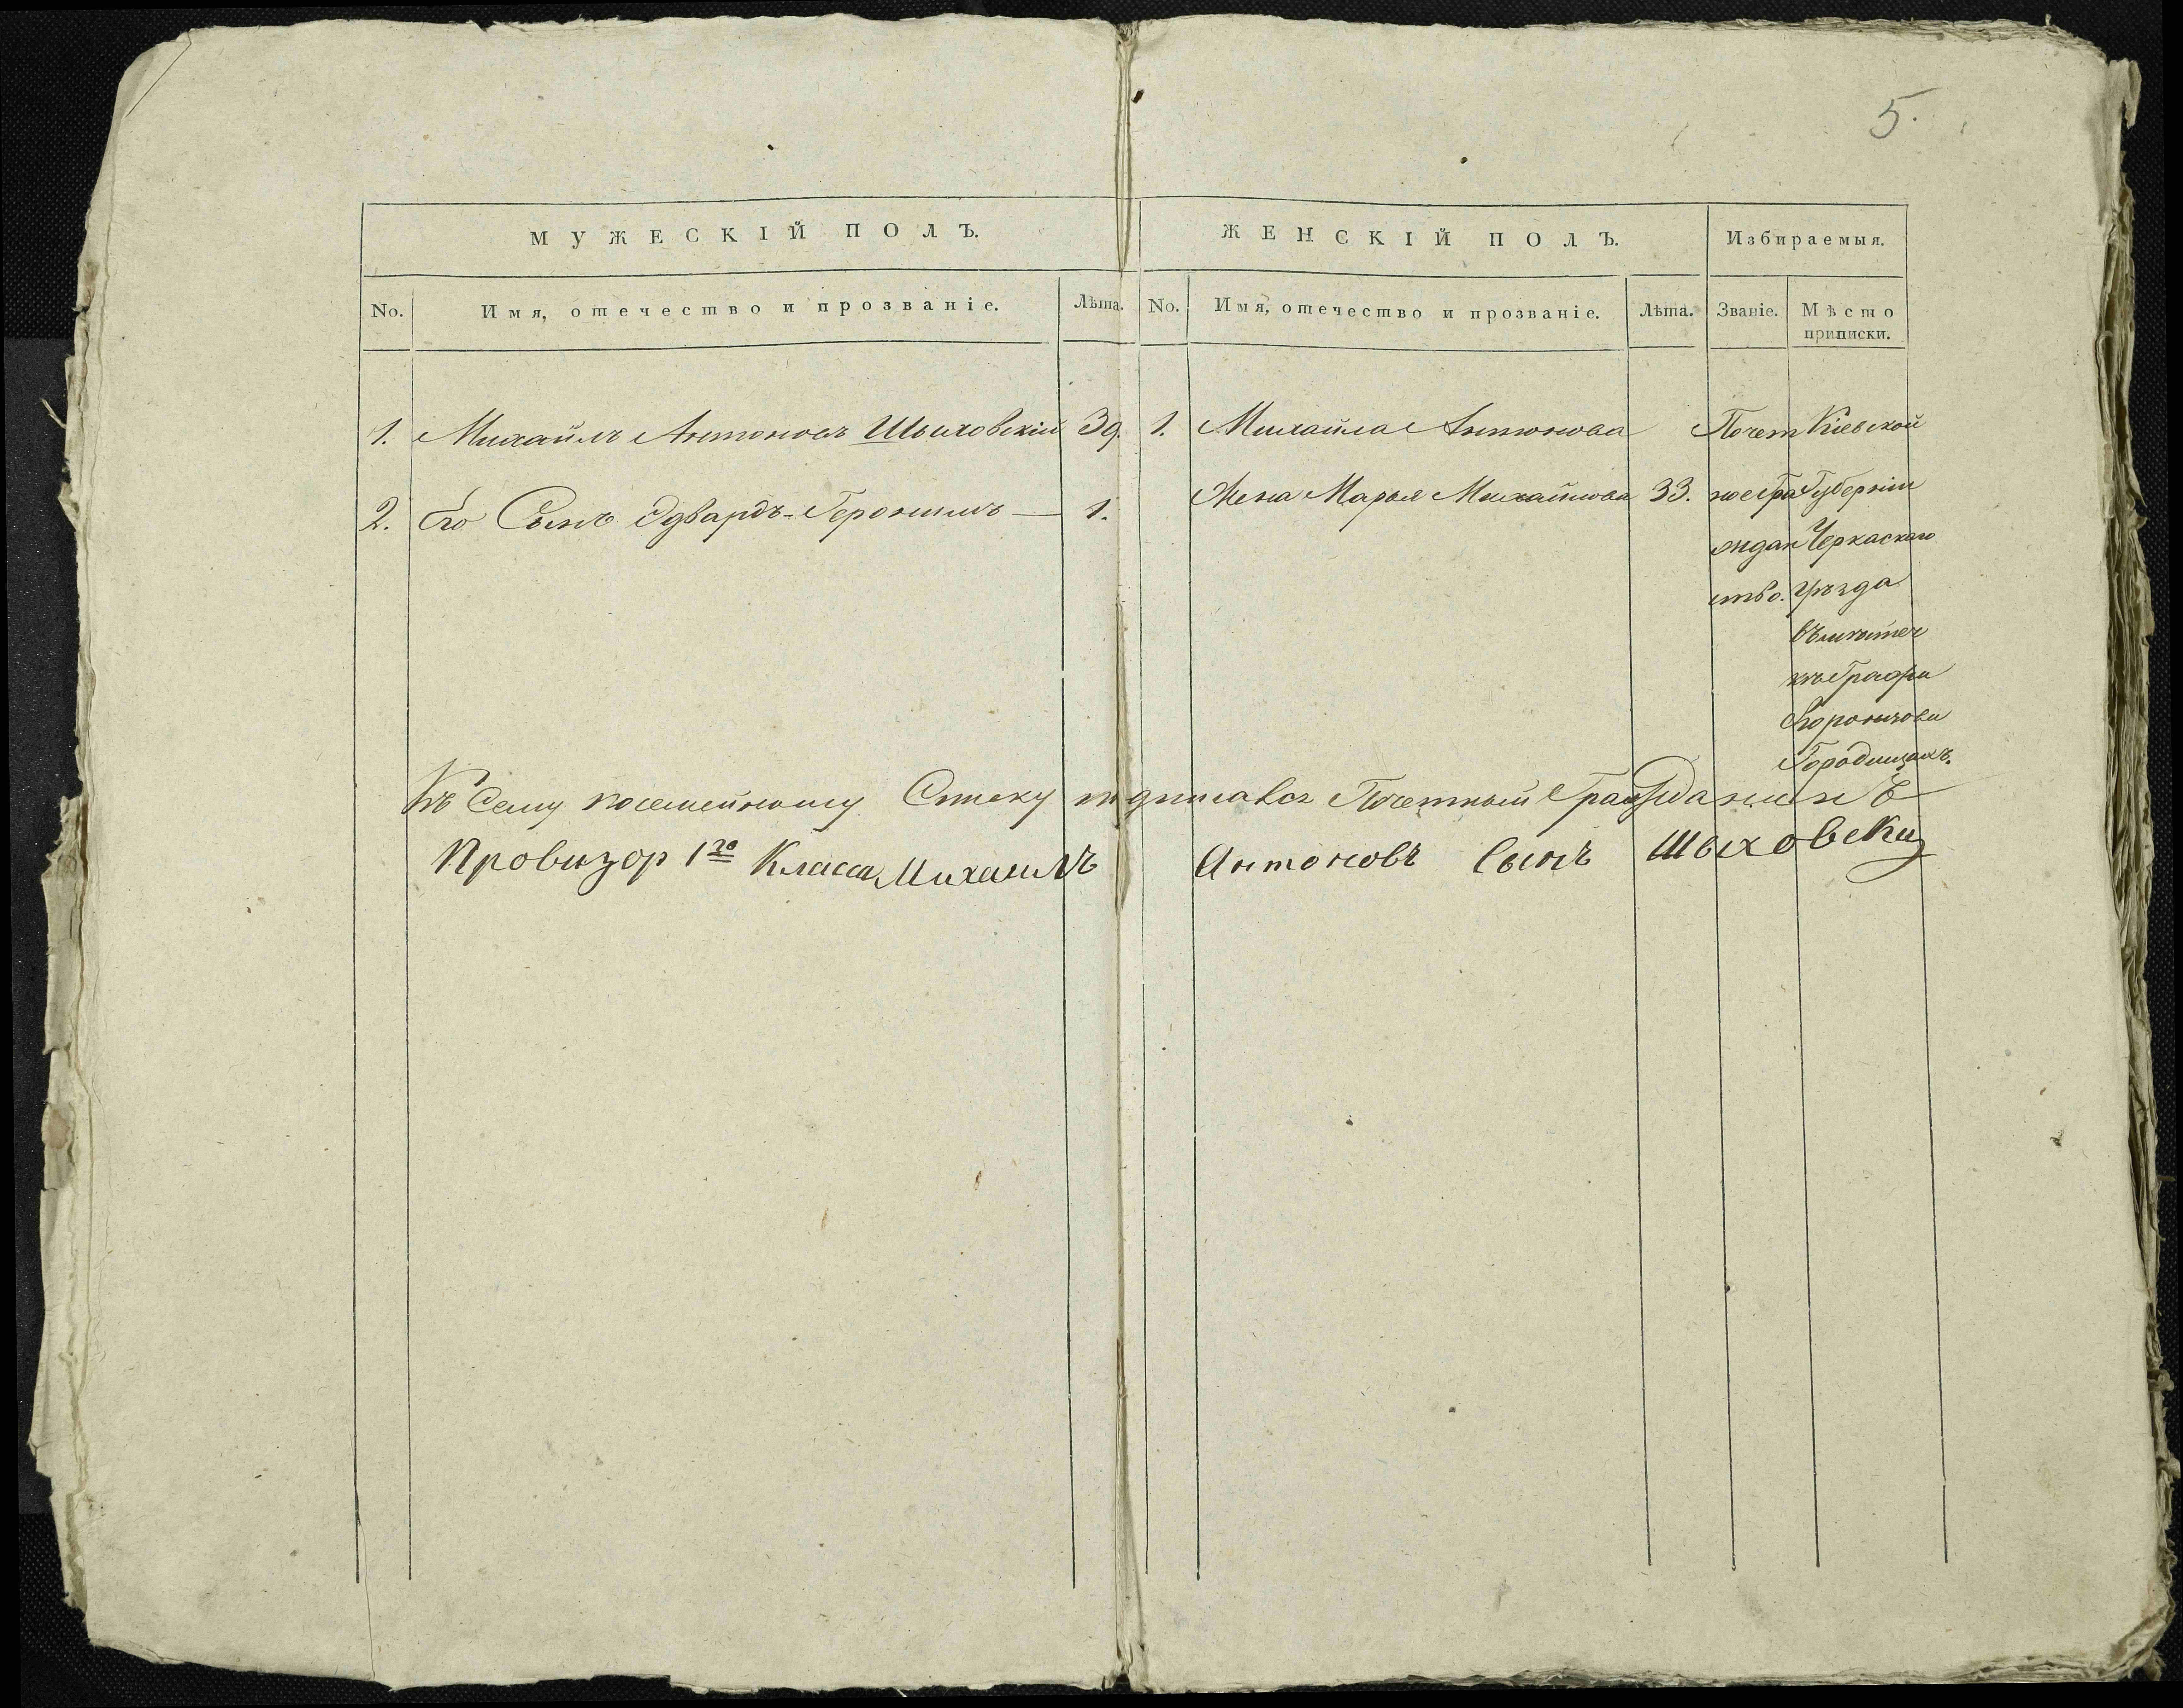 5.
МУЖЕСКІЙ ПОЛЪ. ЖЕНСКІЙ ПОЛЪ. Избираемыя.
No. Имя, отечество и прозваніе. Лѣта. No. Имя, отечество и прозваніе. Лѣта. Званіе. Мѣсто
приписки.
1. Михайлъ Антоновъ Шыховскій 39. 1. Михайла Антонова Почет Кіевской
2. Его Сынъ Эдвардъ-Геронимъ — 1. Жена Марья Михайлова 33. ное Гра Губерніи
ждан Черкаскаго
ство. Уѣзда
въ
Графа
Воронцова
Городищахъ.
Къ Сему посемейному Списку подписался Почетный Гражданинъ
Провизор 1го Класса Михаилъ Антоновъ Сынъ Шыховский